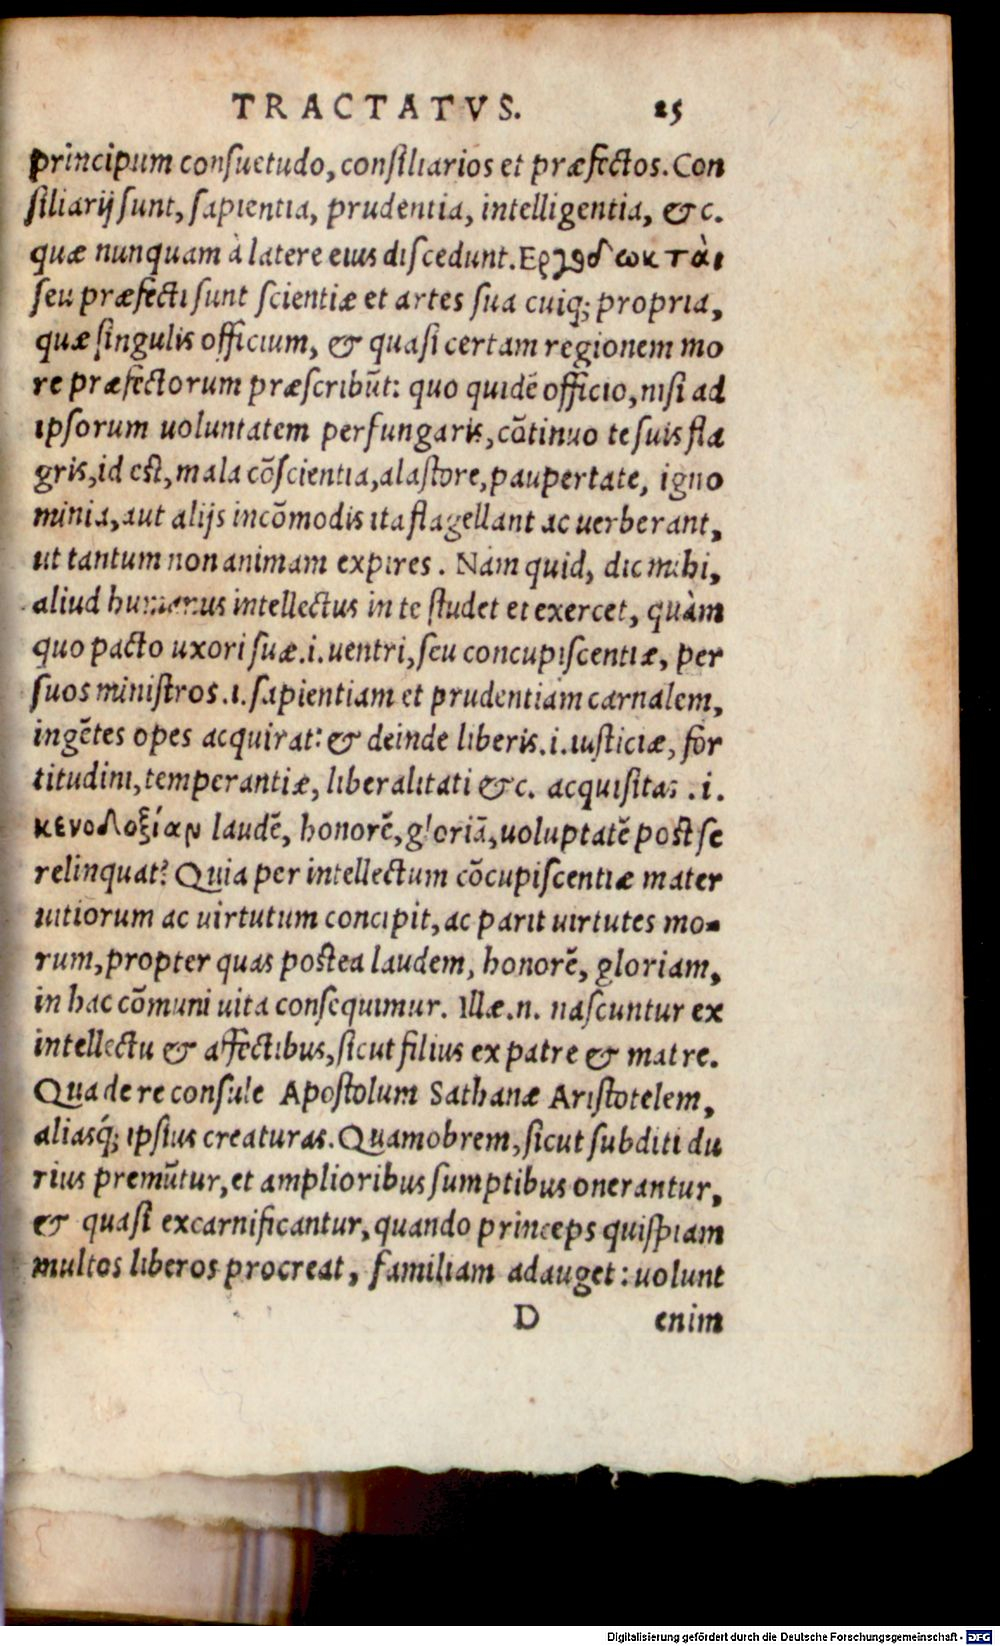 TRACTATVS. 25
principum consuetudo, consiliarios et præfectos. Con
siliarij sunt, sapientia, prudentia, intelligentia, &c.
quæ nunquam à latere eius discedunt. Εργοδιωκται
seu præfecti sunt scientiæ et artes sua cuiq; propria,
quæ singulis officium, & quasi certam regionem mo
re præfectorum præscribūt: quo quidē officio, nisi ad
ipsorum uoluntatem perfungaris, cōtinuo te suis fla
gris, id est, mala cōscientia, alastore, paupertate, igno
minia, aut alijs incōmodis ita flagellant ac uerberant,
ut tantum non animam expires. Nam quid, dic mihi,
aliud humanus intellectus in te studet et exercet, quàm
quo pacto uxori suæ .i. uentri, seu concupiscentiæ, per
suos ministros .i. sapientiam et prudentiam carnalem,
ingētes opes acquirat: & deinde liberis .i. iusticiæ, for
titudini, temperantiæ, liberalitati &c. acquisitas .i.
κενοδοξίαν laudē, honorē, gloriā, uoluptatē post se
relinquat? Quia per intellectum cōcupiscentiæ mater
uitiorum ac uirtutum concipit, ac parit uirtutes mo-
rum, propter quas postea laudem, honorē, gloriam,
in hac cōmuni uita consequimur. Illæ .n. nascuntur ex
intellectu & affectibus, sicut filius ex patre & matre.
Qua de re consule Apostolum Sathanæ Aristotelem,
aliasq́; ipsius creaturas. Quamobrem, sicut subditi du
rius premūtur, et amplioribus sumptibus onerantur,
& quasi excarnificantur, quando princeps quispiam
multos liberos procreat, familiam adauget: uolunt
D enim
Digitalisierung gefördert durch die Deutsche Forschungsgemeinschaft - DFG